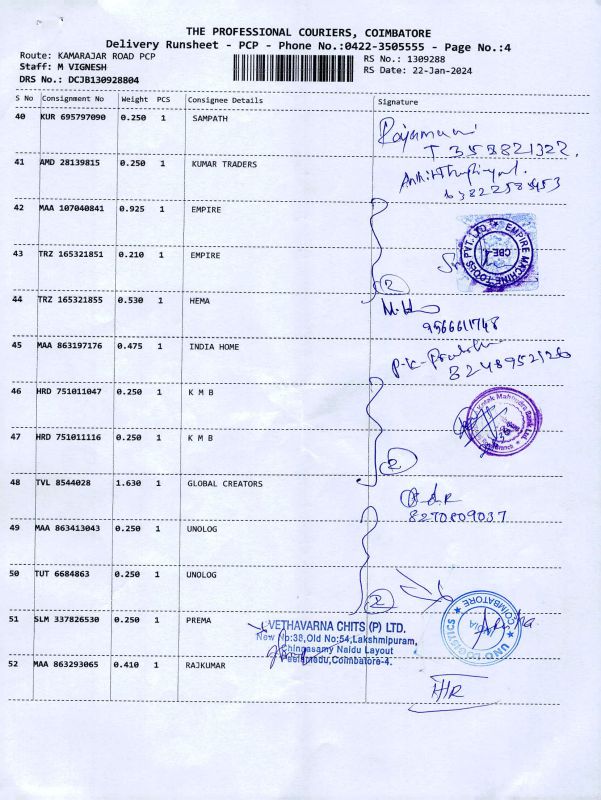 THE PROFESSIONAL COURIERS, COIMBATORE
Delivery Runsheet - PCP - Phone No.:0422-3505555 - Page No.:4
Route: KAMARAJAR ROAD PCP
Staff: M VIGNESH
DRS No.: DCJB130928804
RS No.: 1309288
RS Date: 22-Jan-2024
S No Consignment No Weight PCS Consignee Details Signature
40 KUR 695797090 0.250 1 SAMPATH
Rajamani
41 AMD 28139815 0.250 1 KUMAR TRADERS
42 MAA 107040841 0.925 1 EMPIRE
EMPIRE MACHINE TOOLS PVT. LTD. CBE
43 TRZ 165321851 0.210 1 EMPIRE
2
44 TRZ 165321855 0.530 1 HEMA
9566611748
45 MAA 863197176 0.475 1 INDIA HOME
8248952126
46 HRD 751011047 0.250 1 K M B
Kotak Mahindra Bank Ltd.
47 HRD 751011116 0.250 1 K M B
2
48 TVL 8544028 1.630 1 GLOBAL CREATORS
8270809037
49 MAA 863413043 0.250 1 UNOLOG
50 TUT 6684863 0.250 1 UNOLOG
2
UNO LOGISTICS COIMBATORE INDIA
51 SLM 337826530 0.250 1 PREMA
VETHAVARNA CHITS (P) LTD.
New No:38,Old No:54,Lakshmipuram,
Chinnasamy Naidu Layout
Peelamedu,Coimbatore-4.
52 MAA 863293065 0.410 1 RAJKUMAR